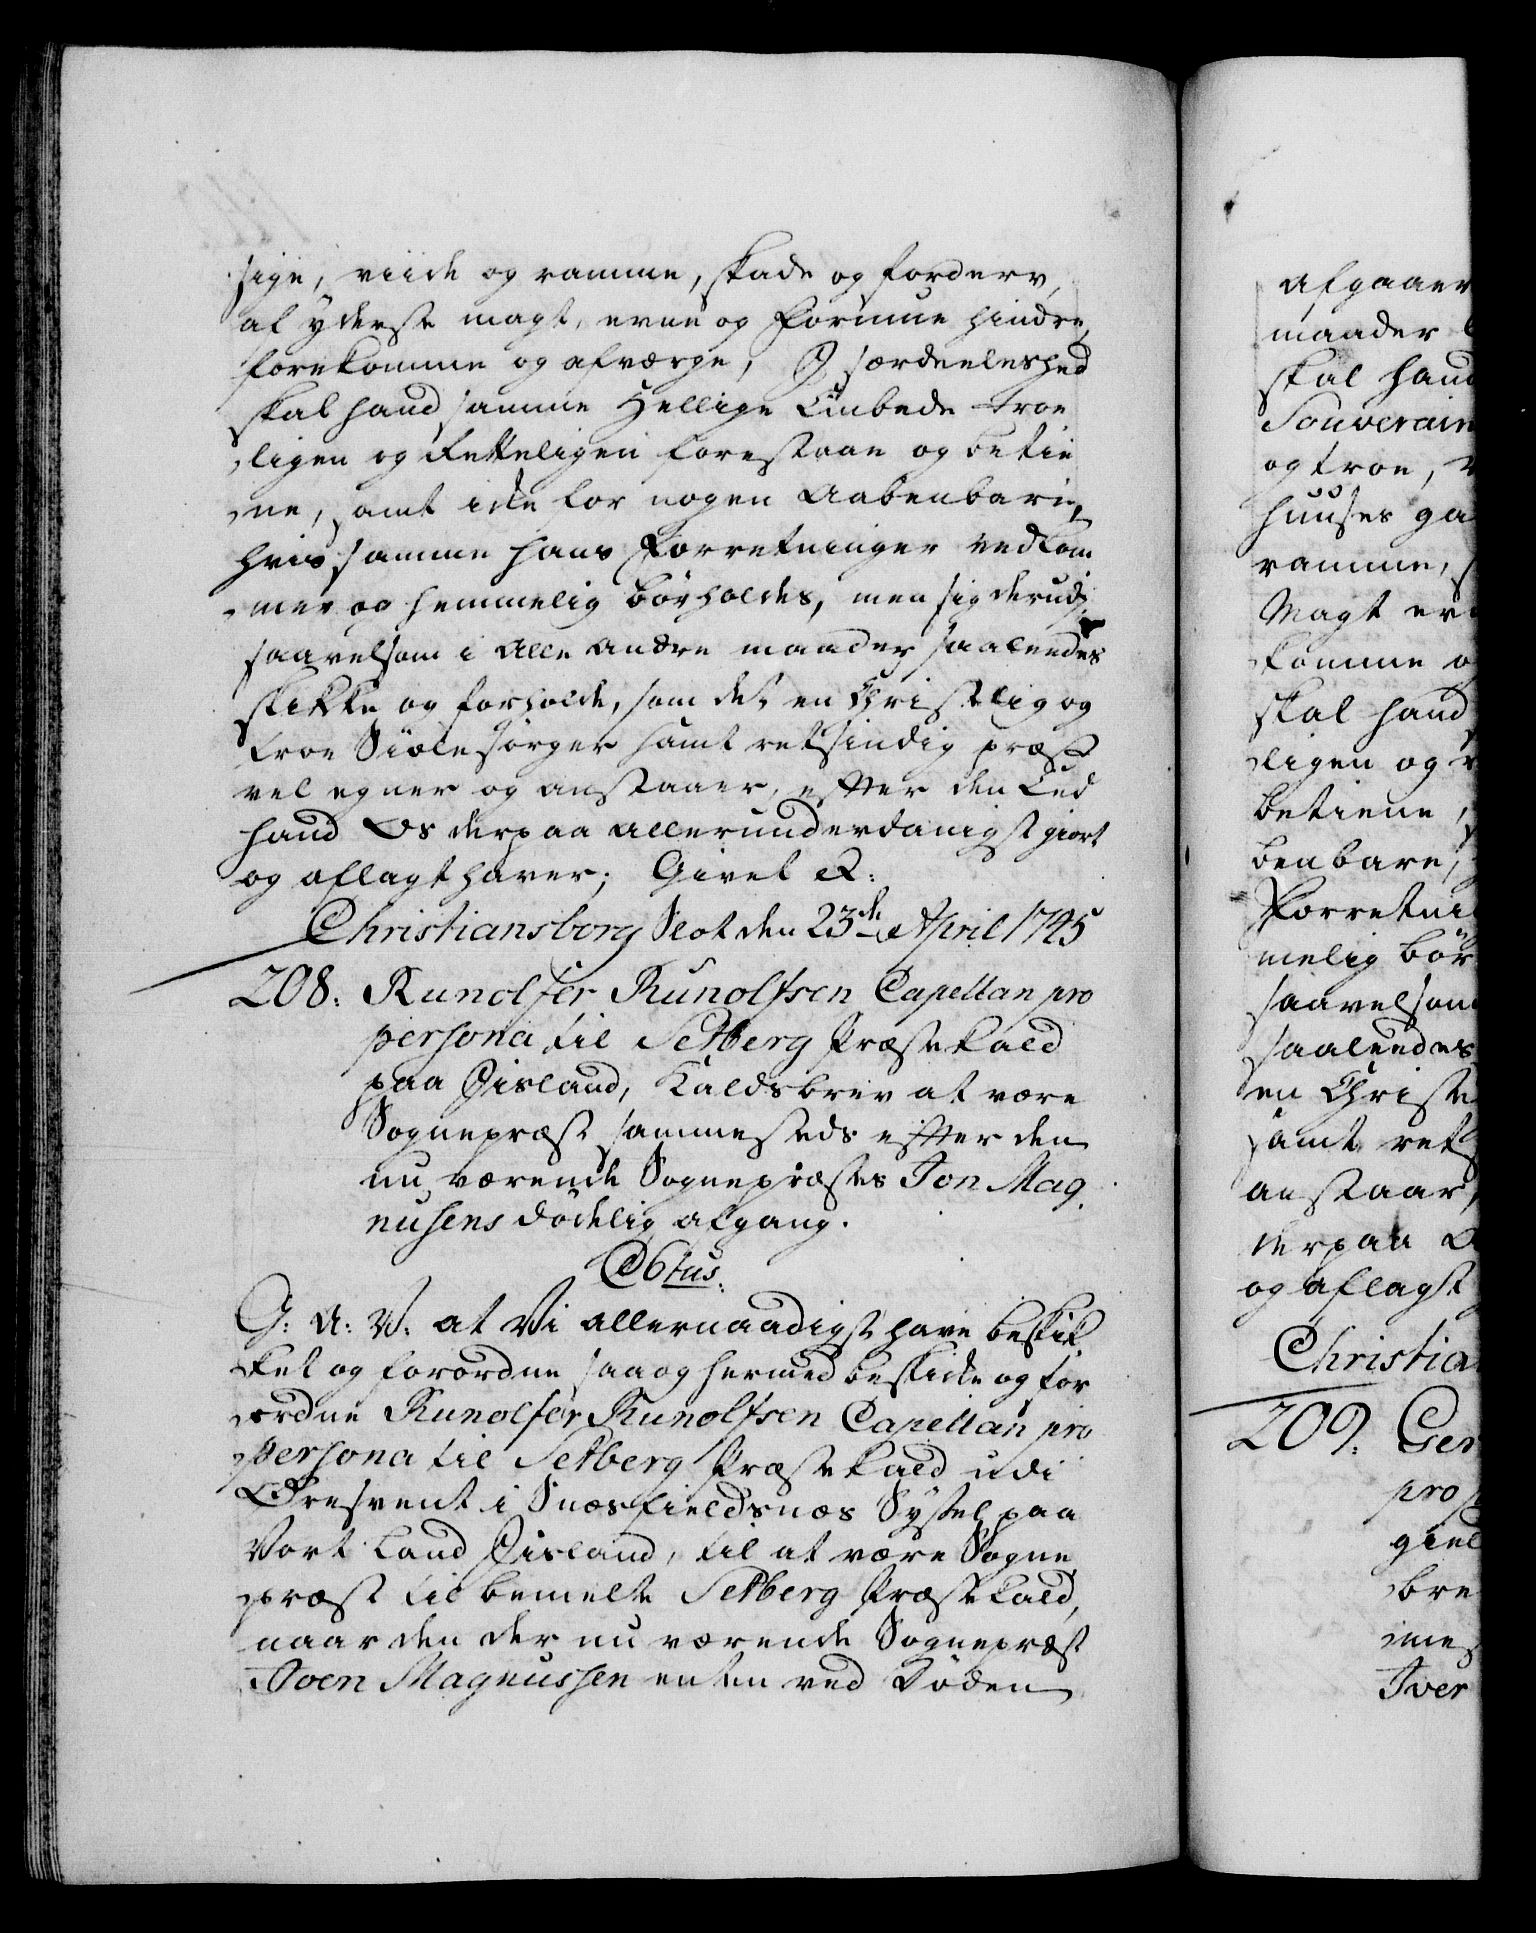 sige, viide og ramme, skade og forderv,
af yderste magt, evne og Formue hindre,
forekomme og afværge, I særdeeleshed
skal hand samme Hellige Embede troe
ligen og Retteligen forestaae og betie
ne, samt icke for nogen Aabenbare,
hvis samme hans Forretninger vedkom
mer og hemmelig bør holdes, men sig derudj
saavelsom i alle andre maader saaledes
skikke og forholde, som det en Christelig og
troe Siælesørger samt retsindig præst
vel egner og anstaaer, effter den Eed
hand Os derpaa allerunderdanigst giort
og aflagt haver; Givet &:
Christiansborg Slot den 23de April 1745
208. Runolfer Runolfsen Capellan pro
persona til Setberg Præstekald
paa Iisland, Kaldsbrev at være
Sognepræst sammesteds effter den
nu værende Sognepræstes Jon Mag
nusens dødelig afgang.
C6tus.
G: A: V: at Vi allernaadigst have beskik
ket og forordne saa og hermed beskicke og for
ordne Runolfer Runolfsen Capellan pro
persona til Setberg Præstekald udi
Øresveit i Snæsfieldsnæs Syssel paa
Vort Land Iisland, til at være Sogne
præst til bemelte Setberg Præstekald,
naar den der nu værende Sognepræst
Joen Magnussen enten ved Døden
afgaaer
maader
skal hand
Souverain
og troe,
huuses ga
ramme,
Magt ev
komme o
skal hand
ligen og r
betiene,
benbare,
Forretni
melig bør
saavelsom
saaledes
en Christe
samt rets
anstaar,
derpaa
og aflagt
Christia
209. Ger
pro p
giel
bre
mes
Iver